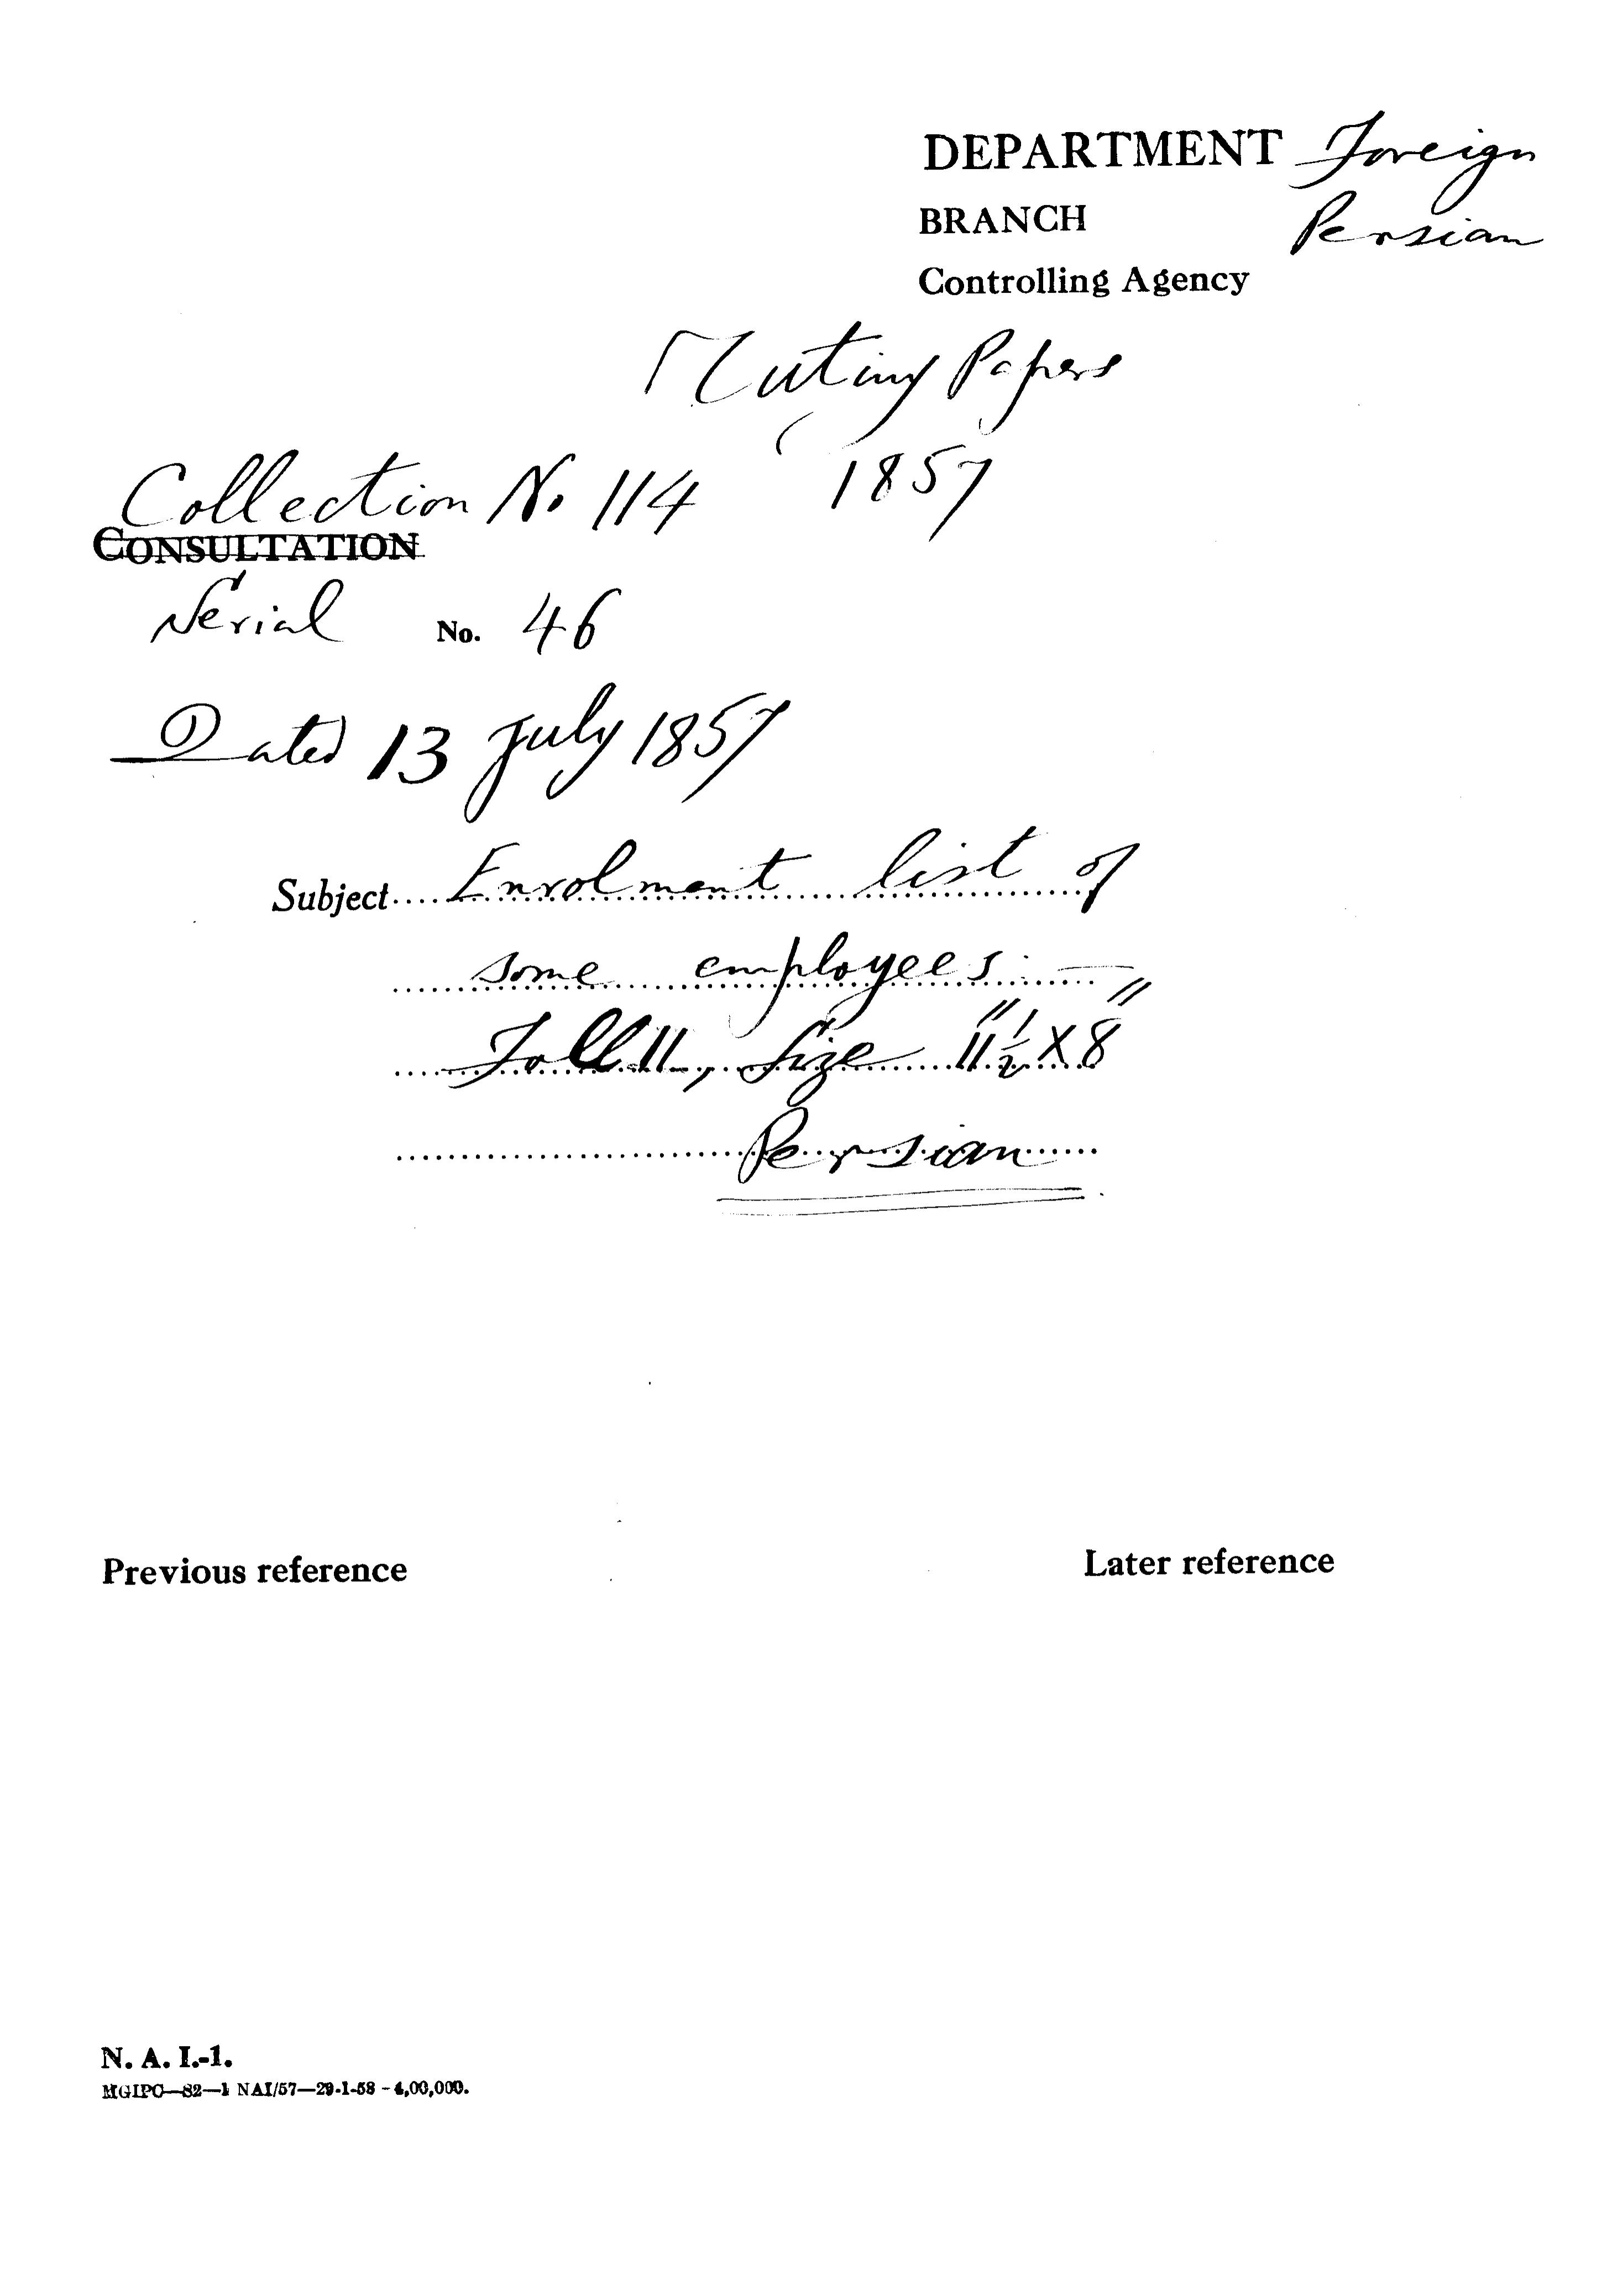 DEPARTMENT Foreign
BRANCH Persian
Controlling Agency
Mutiny Papers
1857
Collection No. 114
CONSULTATION
Serial No. 46
Dated 13 July 1857
Subject.... Enrolment list of
some employees. —
Foll 11, Size 11"½ X 8"
Persian
Previous reference
Later reference
N. A. I.-1.
MGIPC—S2—1 NAI/57—29-1-58 - 4,00,000.